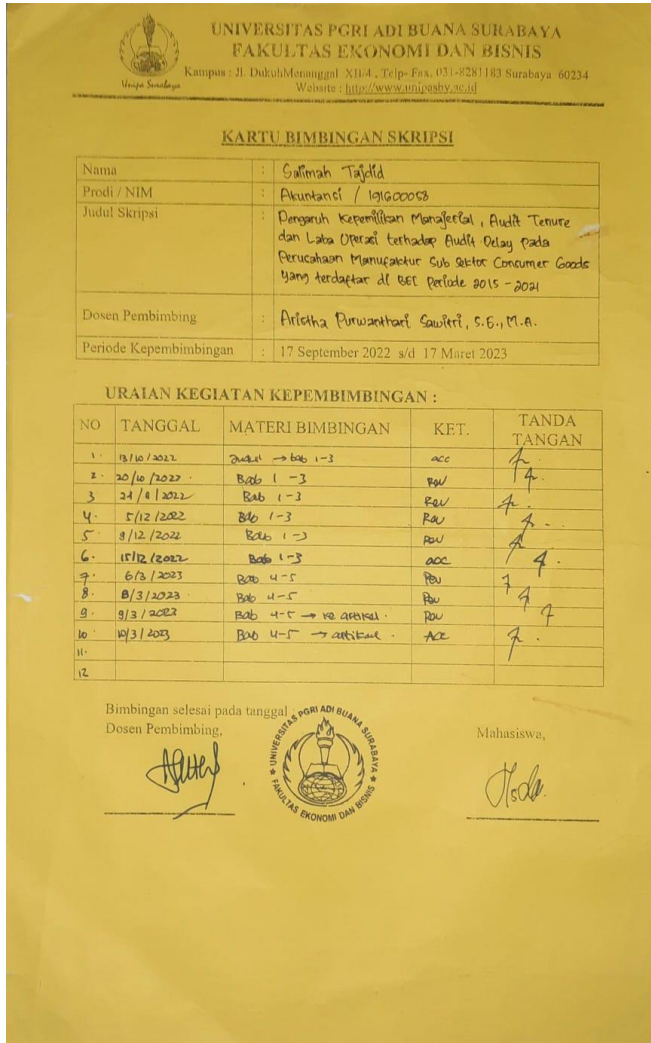 UNIVERSITAS PGRI ADI BUANA SURABAYA
FAKULTAS EKONOMI DAN BISNIS
Kampus : Jl. DukuhMenanggal XII/4 , Telp- Fax. 031-8281183 Surabaya 60234
Website : http://www.unipasby.ac.id
Unipa Surabaya
KARTU BIMBINGAN SKRIPSI
Nama : Salimah Tajdid
Prodi / NIM : Akuntansi / 191600058
Judul Skripsi : Pengaruh Kepemilikan Manajerial , Audit Tenure
dan Laba Operasi terhadap Audit Delay Pada
Perusahaan Manufaktur Sub Sektor Consumer Goods
yang terdaftar di BEI Periode 2015 - 2021
Dosen Pembimbing : Aristha Purwanthari Sawitri, S.E., M.A.
Periode Kepembimbingan : 17 September 2022 s/d 17 Maret 2023
URAIAN KEGIATAN KEPEMBIMBINGAN :
NO TANGGAL MATERI BIMBINGAN KET. TANDA TANGAN
1. 13/10/2022 Judul → bab 1-3 acc
2. 20/10/2022 Bab 1 - 3 Rev
3 Bab 1-3 Rev
4. 5/12/2022 Bab 1-3 Rev
5. 9/12/2022 Bab 1-3 Rev
6. 15/12/2022 Bab 1-3 acc
7. 6/3/2023 Bab 4-5 Rev
8. 8/3/2023 Bab 4-5 Rev
9. 9/3/2023 Bab 4-5 → ke artikel . Rev
10 10/3/2023 Bab 4-5 → artikel . Acc
11.
12
Bimbingan selesai pada tanggal :
Dosen Pembimbing,
Mahasiswa,
UNIVERSITAS PGRI ADI BUANA SURABAYA
FAKULTAS EKONOMI DAN BISNIS